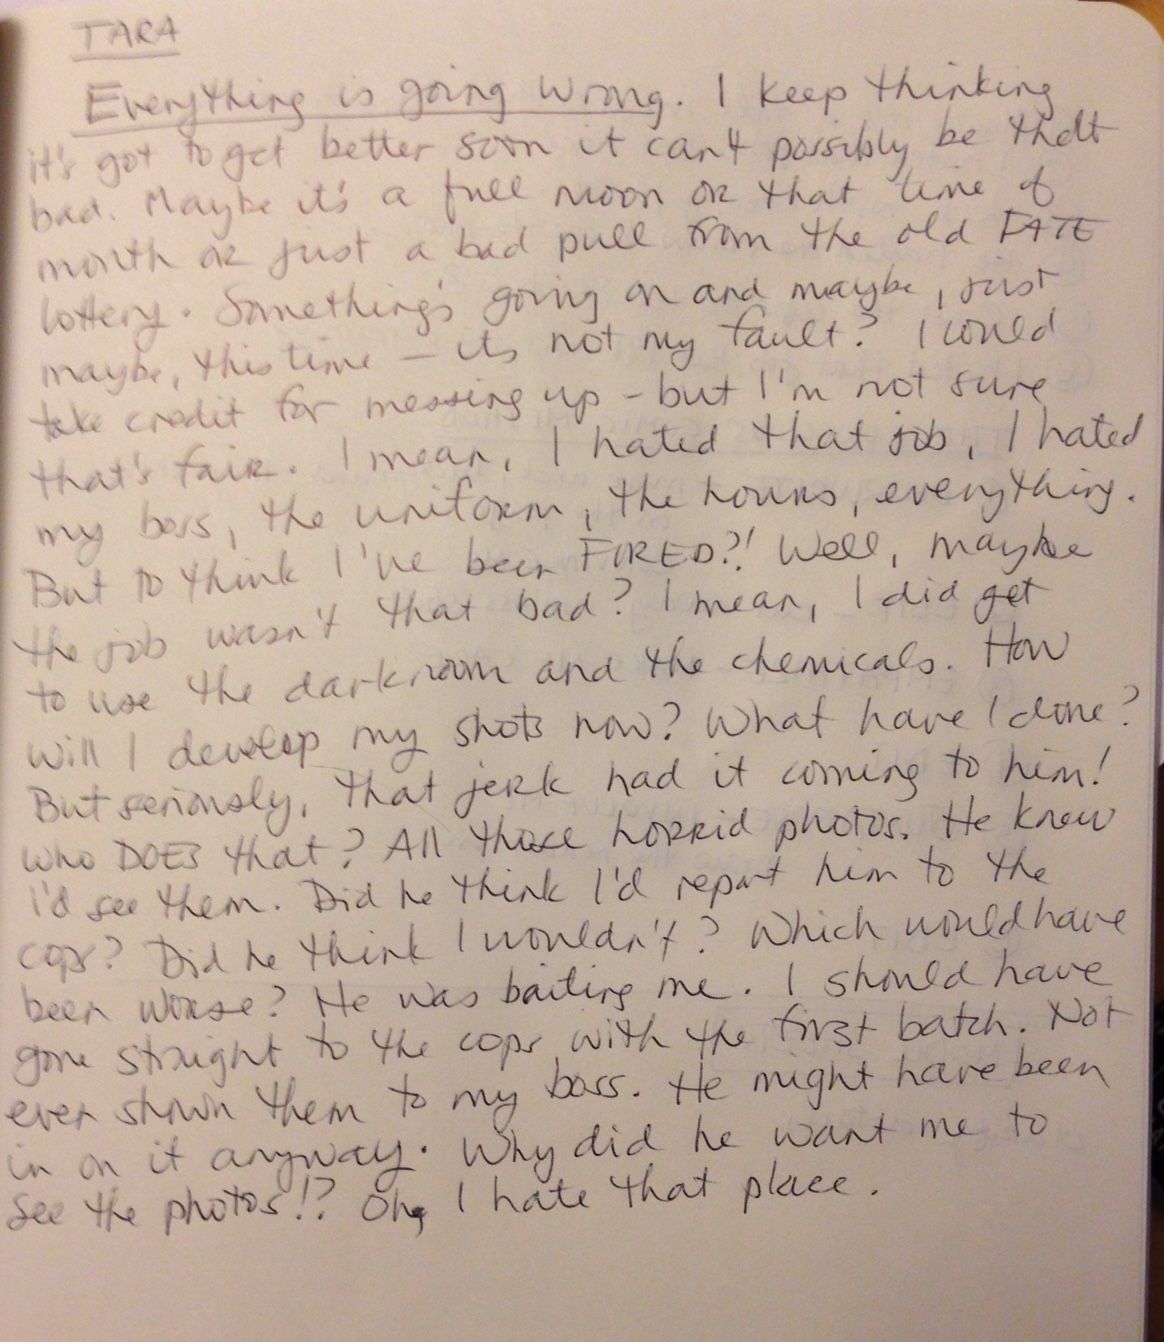 TARA
Everything is going wrong. I keep thinking
it's got to get better soon it can't possibly be that
bad. Maybe it's a full moon or that time of
month or just a bad pull from the old FATE
lottery. Something's going on and maybe, just
maybe, this time – its not my fault? I could
take credit for messing up – but I'm not sure
that's fair. I mean, I hated that job, I hated
my boss, the uniform, the hours, everything.
But to think I've been FIRED?! Well, maybe
the job wasn't that bad? I mean, I did get
to use the darkroom and the chemicals. How
will I develop my shots now? What have I done?
But seriously, that jerk had it coming to him!
Who DOES that? All those horrid photos. He knew
I'd see them. Did he think I'd report him to the
cops? Did he think I wouldn't? Which would have
been worse? He was baiting me. I should have
gone straight to the cops with the first batch. Not
ever shown them to my boss. He might have been
in on it anyway. Why did he want me to
see the photos!? Oh, I hate that place.